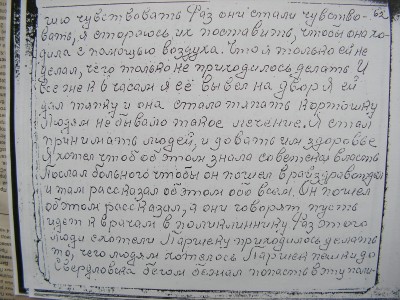 чию чувствовать Раз они стали чувство- 62
вать, я стораюсь, их поставить, чтобы она хо-
дила с помощью воздуха. Что я только ей не
делал, чего только не приходилось делать. И
все ж к часам я её вывел на двор я ей
дал тяпку и она стала тяпать картошку
Людям не бывало такое лечение. Я стал
принимать людей, и довать им здоровье
Я хотел чтоб об этом знала советская власть
Послал больного чтобы он пошел в райздравотдел
и там рассказал об этом обо всем. Он пошел
об этом рассказал, а они говорят, пусть
идет к врачам в поликлиннику Раз этого
люди схотели Паршеку приходилось делать
то, чего людям хотелось Паршек пешки до
Свердловска бегом бежал попасть в эту пали-